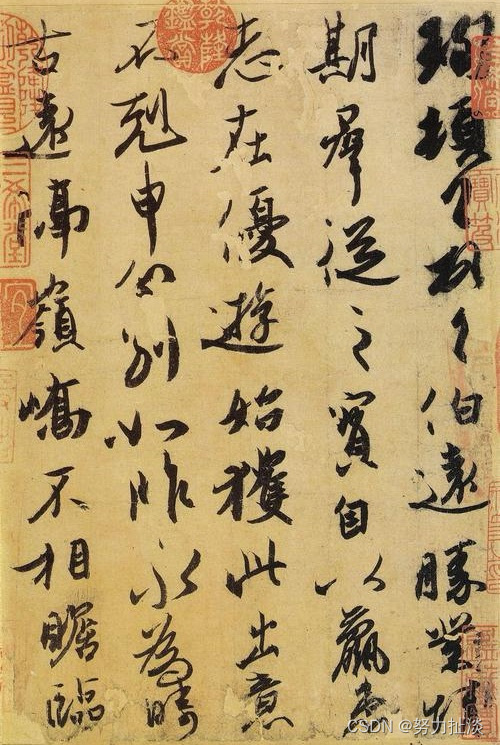 珣頓首頓首伯遠勝業情
期羣從之寶自以羸患
志在優遊始獲此出意
不剋申分別如昨永為疇
古遠隔嶺嶠不相瞻臨
乾隆鑑賞
CSDN @努力扯淡